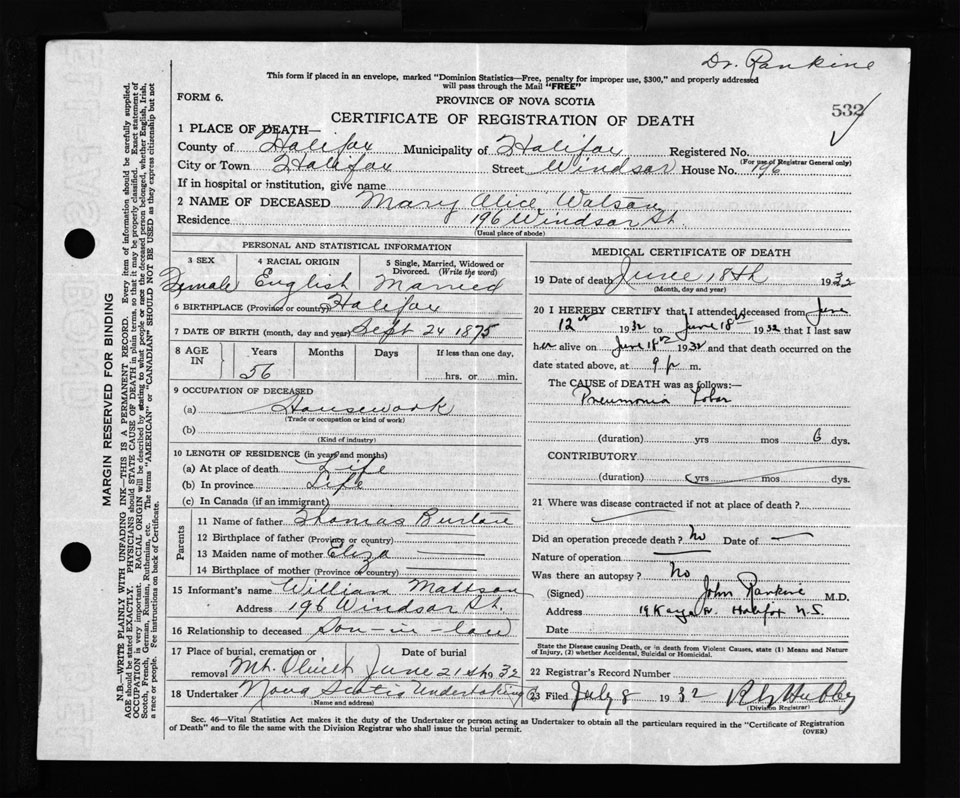 Dr. Rankine
This form if placed in an envelope, marked "Dominion Statistics—Free, penalty for improper use, $300," and properly addressed
will pass through the Mail "FREE"
FORM 6.
PROVINCE OF NOVA SCOTIA
532
CERTIFICATE OF REGISTRATION OF DEATH
1 PLACE OF DEATH—
County of Halifax Municipality of Halifax Registered No.
(For use of Registrar General only)
City or Town Halifax Street Windsor House No. 196
If in hospital or institution, give name
2 NAME OF DECEASED Mary Alice Watson
Residence 196 Windsor St.
(Usual place of abode)
PERSONAL AND STATISTICAL INFORMATION
3 SEX 4 RACIAL ORIGIN 5 Single, Married, Widowed or Divorced. (Write the word)
Female English Married
6 BIRTHPLACE (Province or country) Halifax
7 DATE OF BIRTH (month, day and year) Sept 24 1875
8 AGE IN Years Months Days If less than one day,
56 hrs. or min.
9 OCCUPATION OF DECEASED
(a) Housework
(Trade or occupation or kind of work)
(b)
(Kind of industry)
10 LENGTH OF RESIDENCE (in years and months)
(a) At place of death Life
(b) In province Life
(c) In Canada (if an immigrant)
Parents
11 Name of father Thomas
12 Birthplace of father (Province or country)
13 Maiden name of mother Eliza
14 Birthplace of mother (Province or country)
15 Informant's name William Mattson
Address 196 Windsor St.
16 Relationship to deceased Son-in-law
17 Place of burial, cremation or removal Date of burial
Mt. Olivet June 21st 32
18 Undertaker Nova Scotia Undertaking Co
(Name and address)
MEDICAL CERTIFICATE OF DEATH
19 Date of death June 18th 1932
(Month, day and year)
20 I HEREBY CERTIFY that I attended deceased from June
12th 1932 to June 18th 1932 that I last saw
her alive on June 18th 1932 and that death occurred on the
date stated above, at 9 p m.
The CAUSE of DEATH was as follows:—
Pneumonia Lobar
(duration) yrs mos 6 dys.
CONTRIBUTORY
(duration) yrs mos dys.
21 Where was disease contracted if not at place of death?
Did an operation precede death? No Date of
Nature of operation
Was there an autopsy? No
(Signed) John Rankine M.D.
Address Halifax N.S.
Date
State the Disease causing Death, or in death from Violent Causes, state (1) Means and Nature
of Injury, (2) whether Accidental, Suicidal or Homicidal.
22 Registrar's Record Number
23 Filed July 8 1932
(Division Registrar)
Sec. 46—Vital Statistics Act makes it the duty of the Undertaker or person acting as Undertaker to obtain all the particulars required in the "Certificate of Registration
of Death" and to file the same with the Division Registrar who shall issue the burial permit.
(OVER)
MARGIN RESERVED FOR BINDING
N.B.—WRITE PLAINLY WITH UNFADING INK—THIS IS A PERMANENT RECORD. Every item of information should be carefully supplied.
AGE should be stated EXACTLY. PHYSICIANS should STATE CAUSE OF DEATH in plain terms, so that it may be properly classified. Exact statement of
OCCUPATION is very important. RACIAL ORIGIN will be described by stating to what people or race the deceased person belonged, whether English, Irish,
Scotch, French, German, Russian, Ruthenian, etc. The terms "AMERICAN" or "CANADIAN" SHOULD NOT BE USED as they express citizenship but not
a race or people. See instructions on back of Certificate.